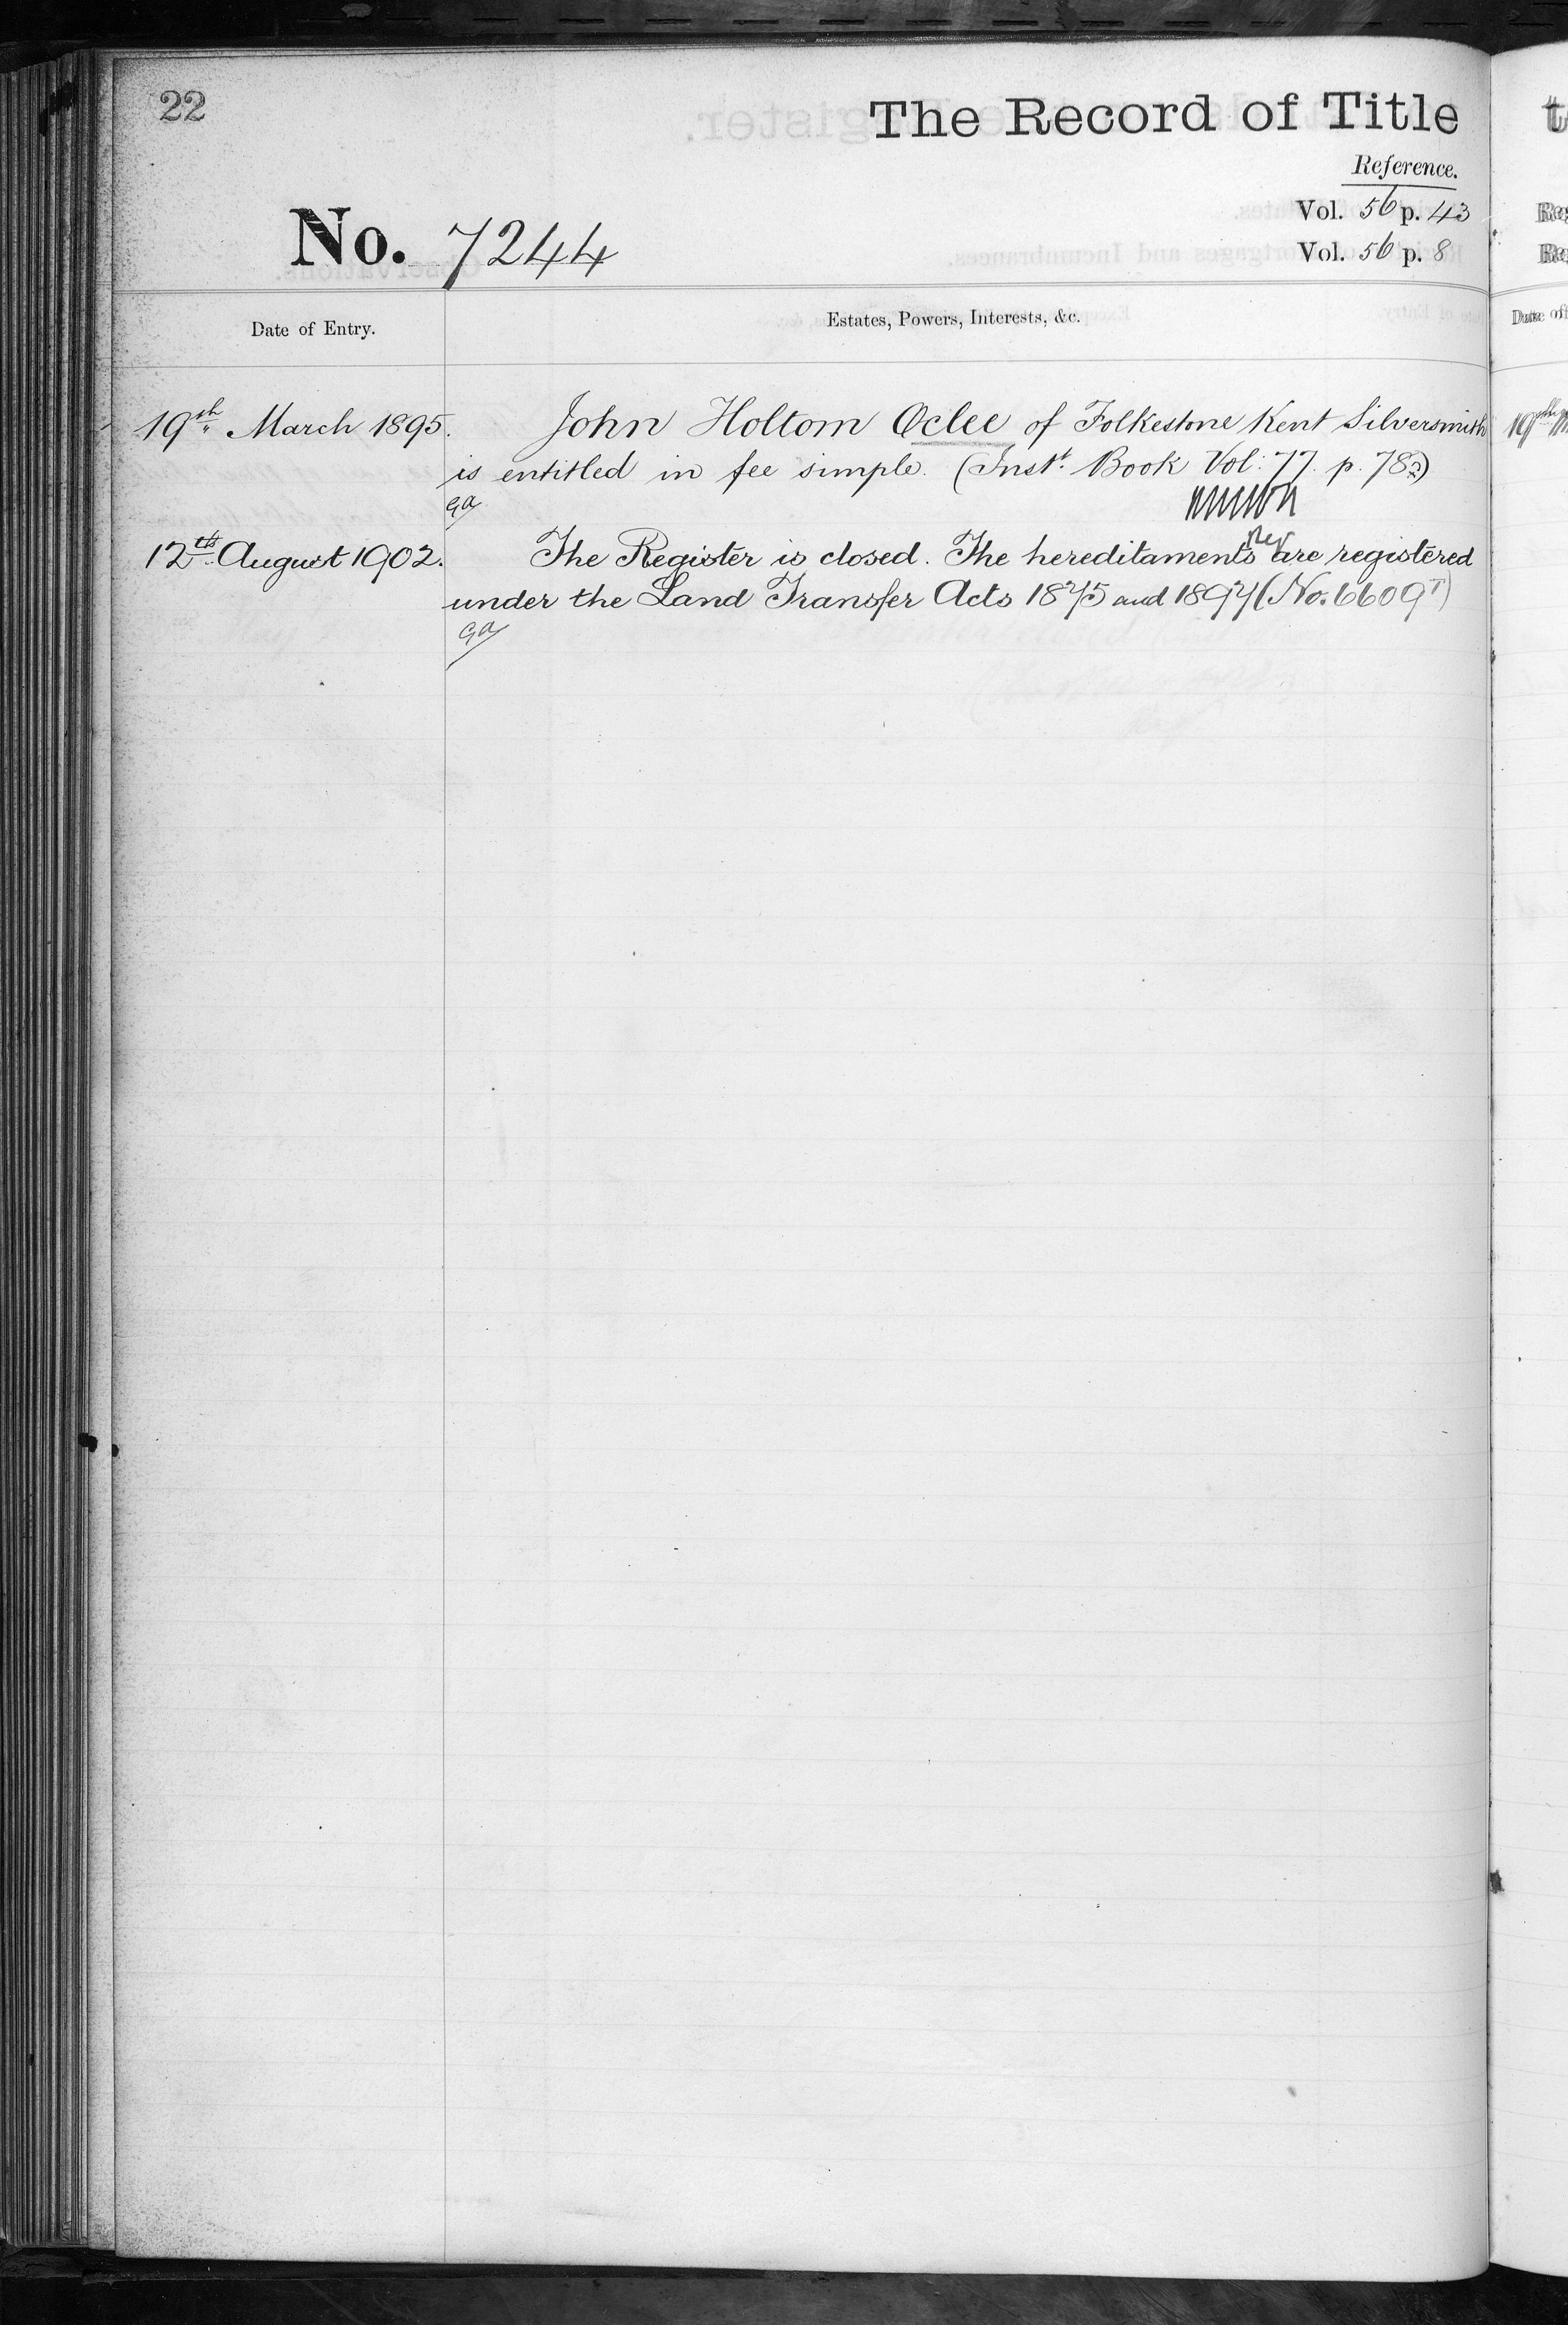 22
The Record of Title
Reference.
Vol. 56 p. 43
No. 7244
Vol. 56 p. 8
Date of Entry.
Estates, Powers, Interests, &c.
19th March 1895.
John Holtom Oclee of Folkestone Kent Silversmith
is entitled in fee simple. (Inst. Book Vol: 77. p. 78.)
12th August 1902.
The Register is closed. The hereditaments are registered
under the Land Transfer Acts 1875 and 1897 (No. 6609)